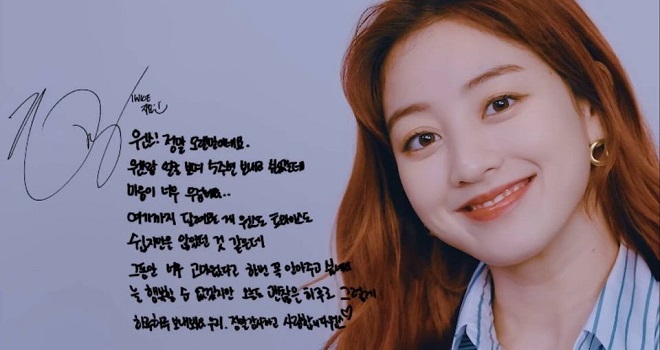 TWICE
지효
우리! 정말 오랜만이네요.
얼굴 보며 5주년 보내고 싶었는데
마음이 너무 무겁네요..
여기까지 달려오는 게 원스도 트와이스도
쉽지만은 않았던 것 같은데
그동안 너무 고마웠다고 하면 꼭 안아주고 싶네요
늘 행복할 수 없겠지만 오늘도 괜찮은 하루로 그렇게
하루하루 보내봐요 우리. 정말 감사하고 사랑합니다 원스♡